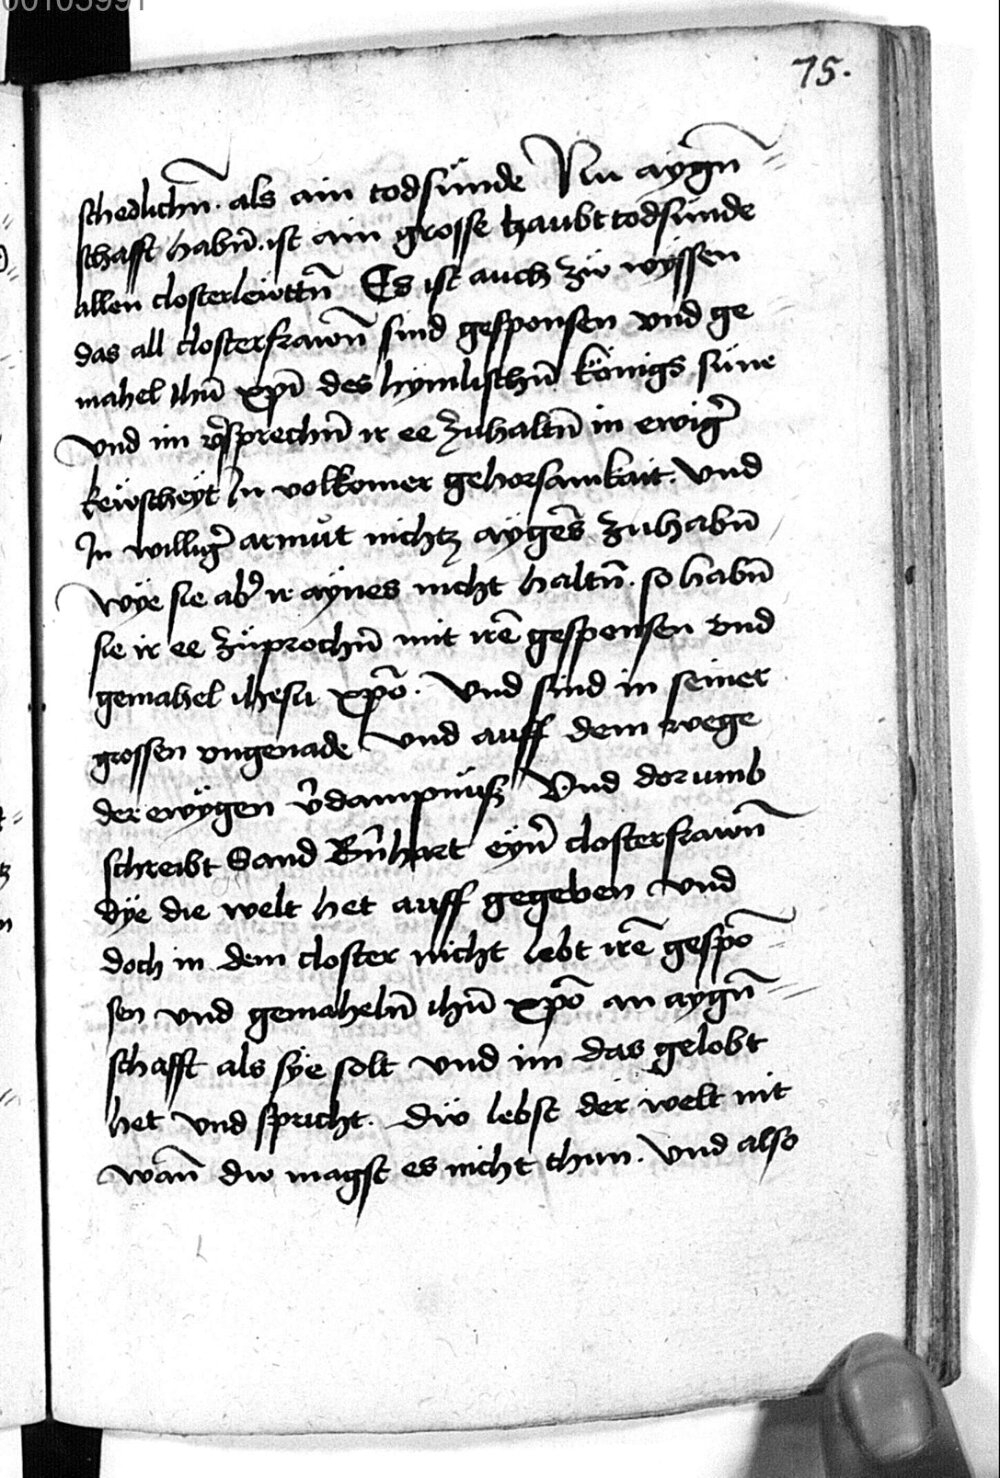 00103991
75.
schedlichn̄. als ain todsünde Nu aygn̄
schafft habn̄. ist ain grosse haubttodsünde
allen closterlewttn̄ Es ist auch zw wyssen
das all closterfrawn̄ sind gesponsen vnd ge
mahel ihū xpī des hymlischn̄ königs süne
vnd im v̉sprechn̄ ir ee zuhaltn̄ in ewig̉
kewscheyt In volkomer gehorsamkait. Vnd
In willig̉ armůt nichtz aygēs zuhabn̄
Wye sie ab̉ ir aynes nicht haltn̄. so habn̄
sie ir ee zuprochn̄ mit irē gesponsen vnd
gemahel ihesu xp̄o. Vnd sind in seiner
grossen vngenade Vnd auff dem wege
der ewygen v̉dampnüsz Vnd dorumb
schreibt Sand Bn̉hart eyn̉ closterfrawn̄
dye die welt het auff gegeben vnd
doch in dem closter nicht lebt irē gespō
sen vnd gemaheln̄ ihū xp̄o an aygn̄
schafft als sye solt vnd im das gelobt
het vnd spricht. Dw lebst der welt nit
wan̄ dw magst es nicht thun. Vnd also